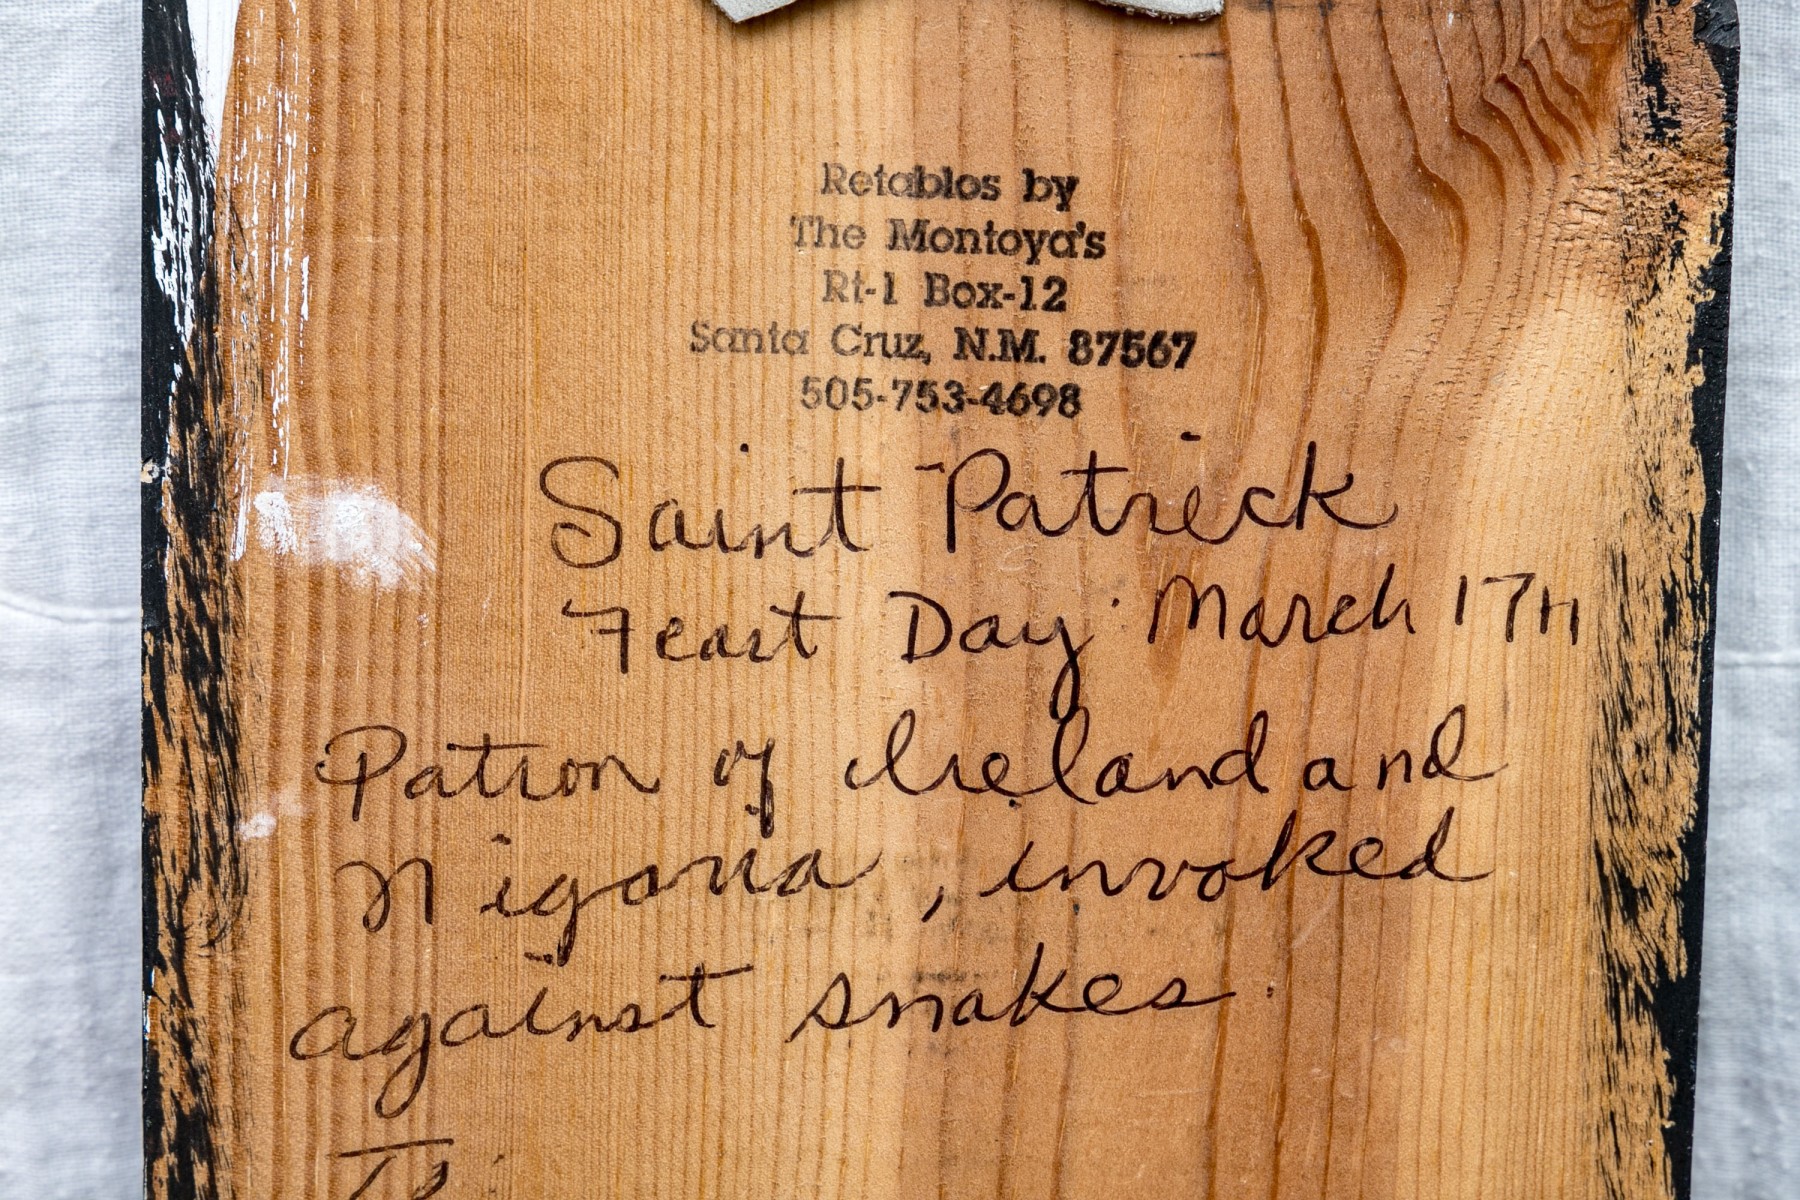 Retablos by
The Montoya's
Rt-1 Box-12
Santa Cruz, N.M. 87567
505-753-4698
Saint Patrick
Feast Day: March 17th
Patron of Ireland and
Nigaria, invoked
against snakes.